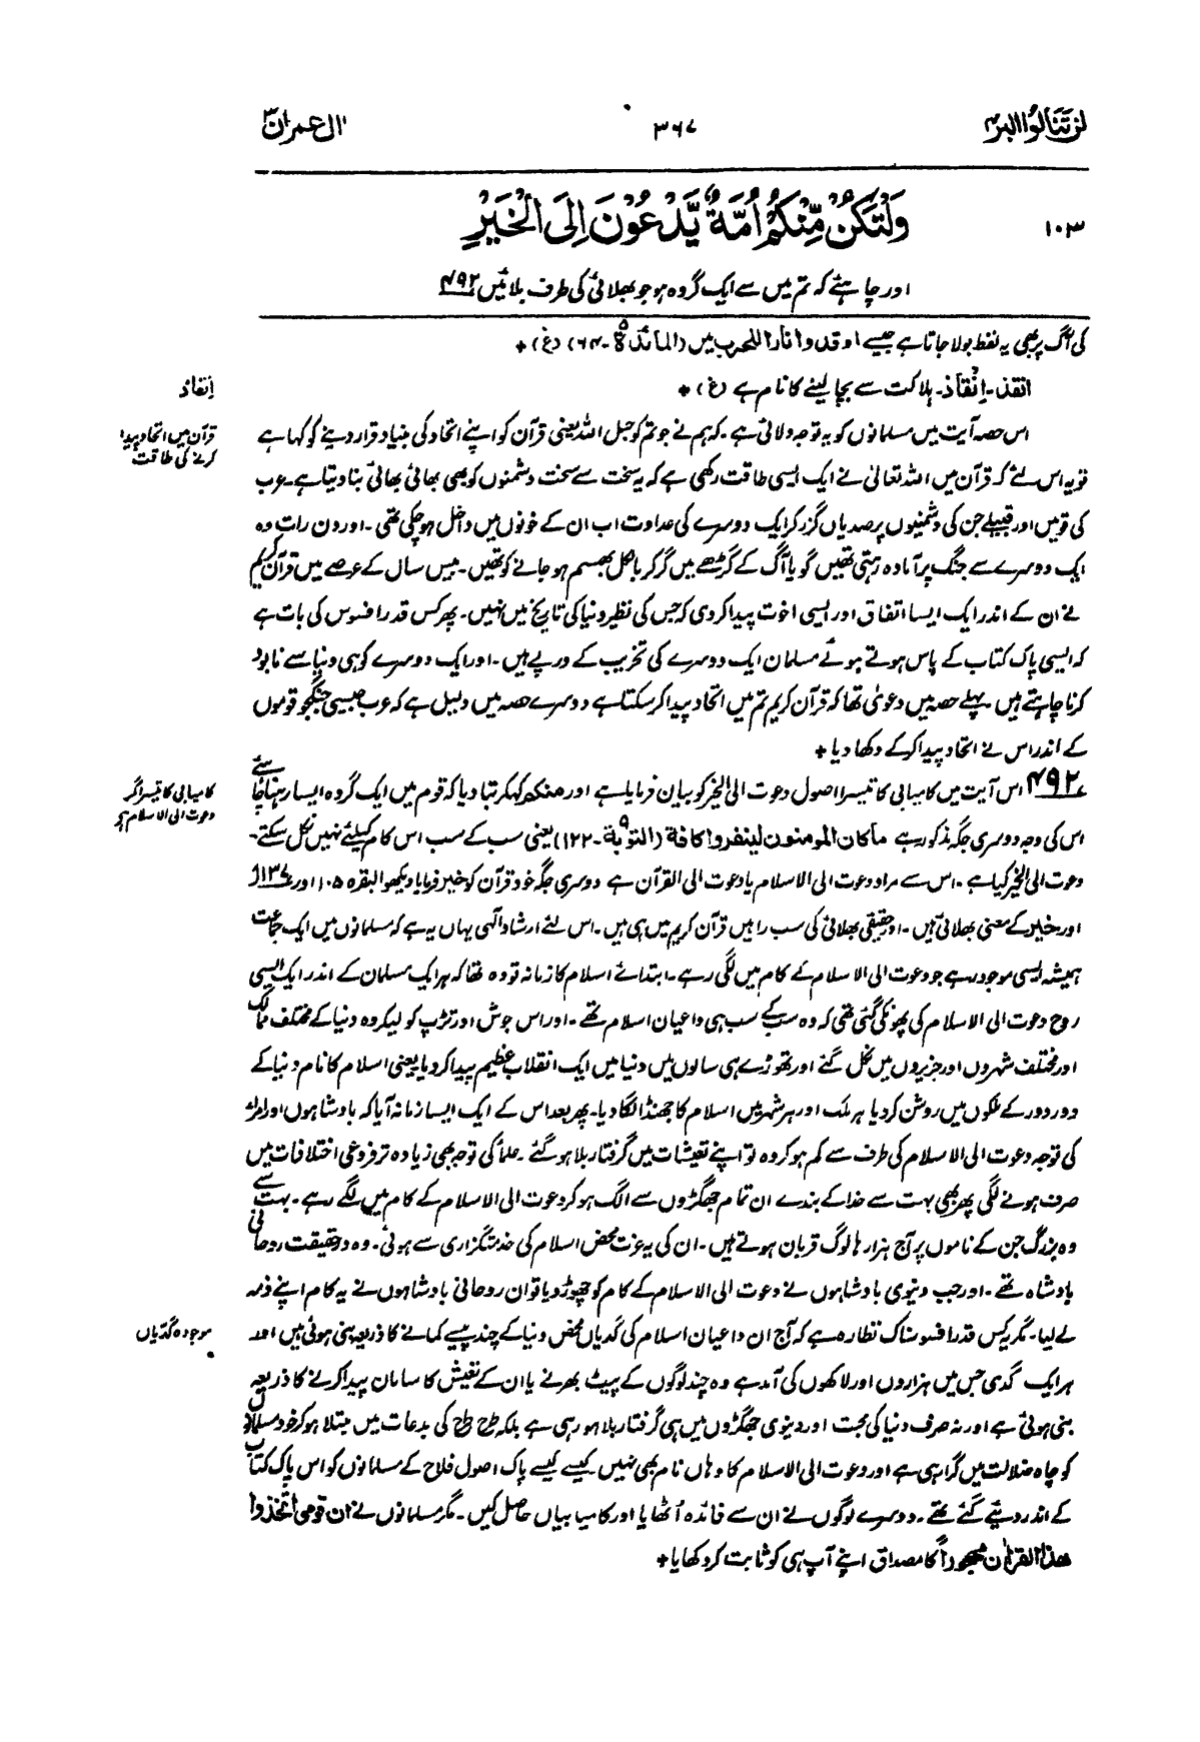 لن تنالوا البر ۴
۳۶۷
اٰل عمران ۳
۱۰۳
وَلْتَكُنْ مِّنْكُمْ اُمَّةٌ يَّدْعُوْنَ اِلَى الْخَيْرِ
اور چاہئے کہ تم میں سے ایک گروہ ہو جو بھلائی کی طرف بلائیں ۴۹۲
کی آگ پر بھی یہ لفظ بولا جاتا ہے جیسے اوقدوا نارا للحرب میں (المائدۃ ۵-۶۴) (غ)+
انقذ۔ اِنْقاذ۔ ہلاکت سے بچا لینے کا نام ہے (غ)+
اِنقاذ
اس حصہ آیت میں مسلمانوں کو یہ توجہ دلائی ہے۔ کہ ہم نے جو تم کو حبل اللہ یعنی قرآن کو اپنے اتحاد کی بنیاد قرار دینے کو کہا ہے
قرآن میں اتحاد پیدا
کرنے کی طاقت
تو یہ اس لئے کہ قرآن میں اللہ تعالیٰ نے ایک ایسی طاقت رکھی ہے کہ یہ سخت سے سخت دشمنوں کو بھی بھائی بھائی بنا دیتا ہے۔ عرب
کی قومیں اور قبیلے جن کی دشمنیوں پر صدیاں گزر کر ایک دوسرے کی عداوت اب ان کے خونوں میں داخل ہو چکی تھی۔ اور دن رات وہ
ایک دوسرے سے جنگ پر آمادہ رہتی تھیں گویا آگ کے گڑھے میں گر کر بالکل بھسم ہو جانے کو تھیں۔ بیس سال کے عرصے میں قرآن کریم
نے ان کے اندر ایک ایسا اتفاق اور ایسی اخوت پیدا کر دی کہ جس کی نظیر دنیا کی تاریخ میں نہیں۔ پھر کس قدر افسوس کی بات ہے
کہ ایسی پاک کتاب کے پاس ہوتے ہوئے مسلمان ایک دوسرے کی تخریب کے درپے ہیں۔ اور ایک دوسرے کو ہی دنیا سے نابود
کرنا چاہتے ہیں پہلے حصہ میں دعویٰ تھا کہ قرآن کریم تم میں اتحاد پیدا کر سکتا ہے دوسرے حصہ میں دلیل ہے کہ عرب جیسی جنگجو قوموں
کے اندر اس نے اتحاد پیدا کر کے دکھا دیا+
۴۹۲ اس آیت میں کامیابی کا تیسرا اصول دعوت الی الخیر کو بیان فرمایا ہے اور منکم کہکر بتا دیا کہ قوم میں ایک گروہ ایسا رہنا چاہئے
کامیابی کا تیسرا گر
دعوت الی الاسلام ہے
اس کی وجہ دوسری جگہ مذکور ہے ماکان المومنون لینفروا کافۃ (التوبۃ ۹-۱۲۲) یعنی سب کے سب اس کام کیلئے نہیں نکل سکتے۔
دعوت الی الخیر کیا ہے۔ اس سے مراد دعوت الی الاسلام یا دعوت الی القرآن ہے دوسری جگہ خود قرآن کو خیر فرمایا دیکھو البقرہ ۱۰۵ اور
اور خیر کے معنی بھلائی ہیں۔ اور حقیقی بھلائی کی سب راہیں قرآن کریم میں ہی ہیں۔ اس لئے ارشاد الٰہی یہاں یہ ہے کہ مسلمانوں میں ایک جماعت
ہمیشہ ایسی موجود رہے جو دعوت الی الاسلام کے کام میں لگی رہے۔ ابتدائے اسلام کا زمانہ تو وہ تھا کہ ہر ایک مسلمان کے اندر ایک ایسی
روح دعوت الی الاسلام کی پھونکی گئی تھی کہ وہ سب کے سب ہی داعیان اسلام تھے۔ اور اس جوش اور تڑپ کو لیکر وہ دنیا کے مختلف ممالک
اور مختلف شہروں اور جزیروں میں نکل گئے اور تھوڑے ہی سالوں میں دنیا میں ایک انقلاب عظیم پیدا کر دیا یعنی اسلام کا نام دنیا کے
دور دور کے ملکوں میں روشن کر دیا ہر ملک اور ہر شہر میں اسلام کا جھنڈا لگا دیا۔ پھر بعد اس کے ایک ایسا زمانہ آیا کہ بادشاہوں اور امراء
کی توجہ دعوت الی الاسلام کی طرف سے کم ہو کر وہ تو اپنے تعیشات میں گرفتار بلا ہو گئے۔ علماء کی توجہ بھی زیادہ تر فروعی اختلافات میں
صرف ہونے لگی پھر بھی بہت سے خدا کے بندے ان تمام جھگڑوں سے الگ ہو کر دعوت الی الاسلام کے کام میں لگے رہے۔ بہت سے
وہ بزرگ جن کے ناموں پر آج ہزارہا لوگ قربان ہوتے ہیں۔ ان کی یہ عزت محض اسلام کی خدمتگزاری سے ہوئی۔ وہ درحقیقت روحانی
بادشاہ تھے۔ اور جب دنیوی بادشاہوں نے دعوت الی الاسلام کے کام کو چھوڑ دیا تو ان روحانی بادشاہوں نے یہ کام اپنے ذمہ
لے لیا۔ مگر یہ کس قدر افسوسناک نظارہ ہے کہ آج ان داعیان اسلام کی گدیاں محض دنیا کے چند پیسے کمانے کا ذریعہ بنی ہوئی ہیں اور
موجودہ گدیاں
ہر ایک گدی جس میں ہزاروں اور لاکھوں کی آمد ہے وہ چند لوگوں کے پیٹ بھرنے یا ان کے تعیش کا سامان پیدا کرنے کا ذریعہ
بنی ہوئی ہے اور نہ صرف دنیا کی محبت اور دنیوی جھگڑوں میں ہی گرفتار بلا ہو رہی ہے بلکہ طرح طرح کی بدعات میں مبتلا ہو کر خود مسلمانوں
کو چاہ ضلالت میں گرا رہی ہے اور دعوت الی الاسلام کا وہاں نام بھی نہیں کیسے کیسے پاک اصول فلاح کے مسلمانوں کو اس پاک کتاب
کے اندر دیئے گئے تھے۔ دوسرے لوگوں نے ان سے فائدہ اُٹھایا اور کامیابیاں حاصل کیں۔ مگر مسلمانوں نے ان قومی اتخذوا
ھذا القرآن مھجوراً کا مصداق اپنے آپ ہی کو ثابت کر دکھایا+